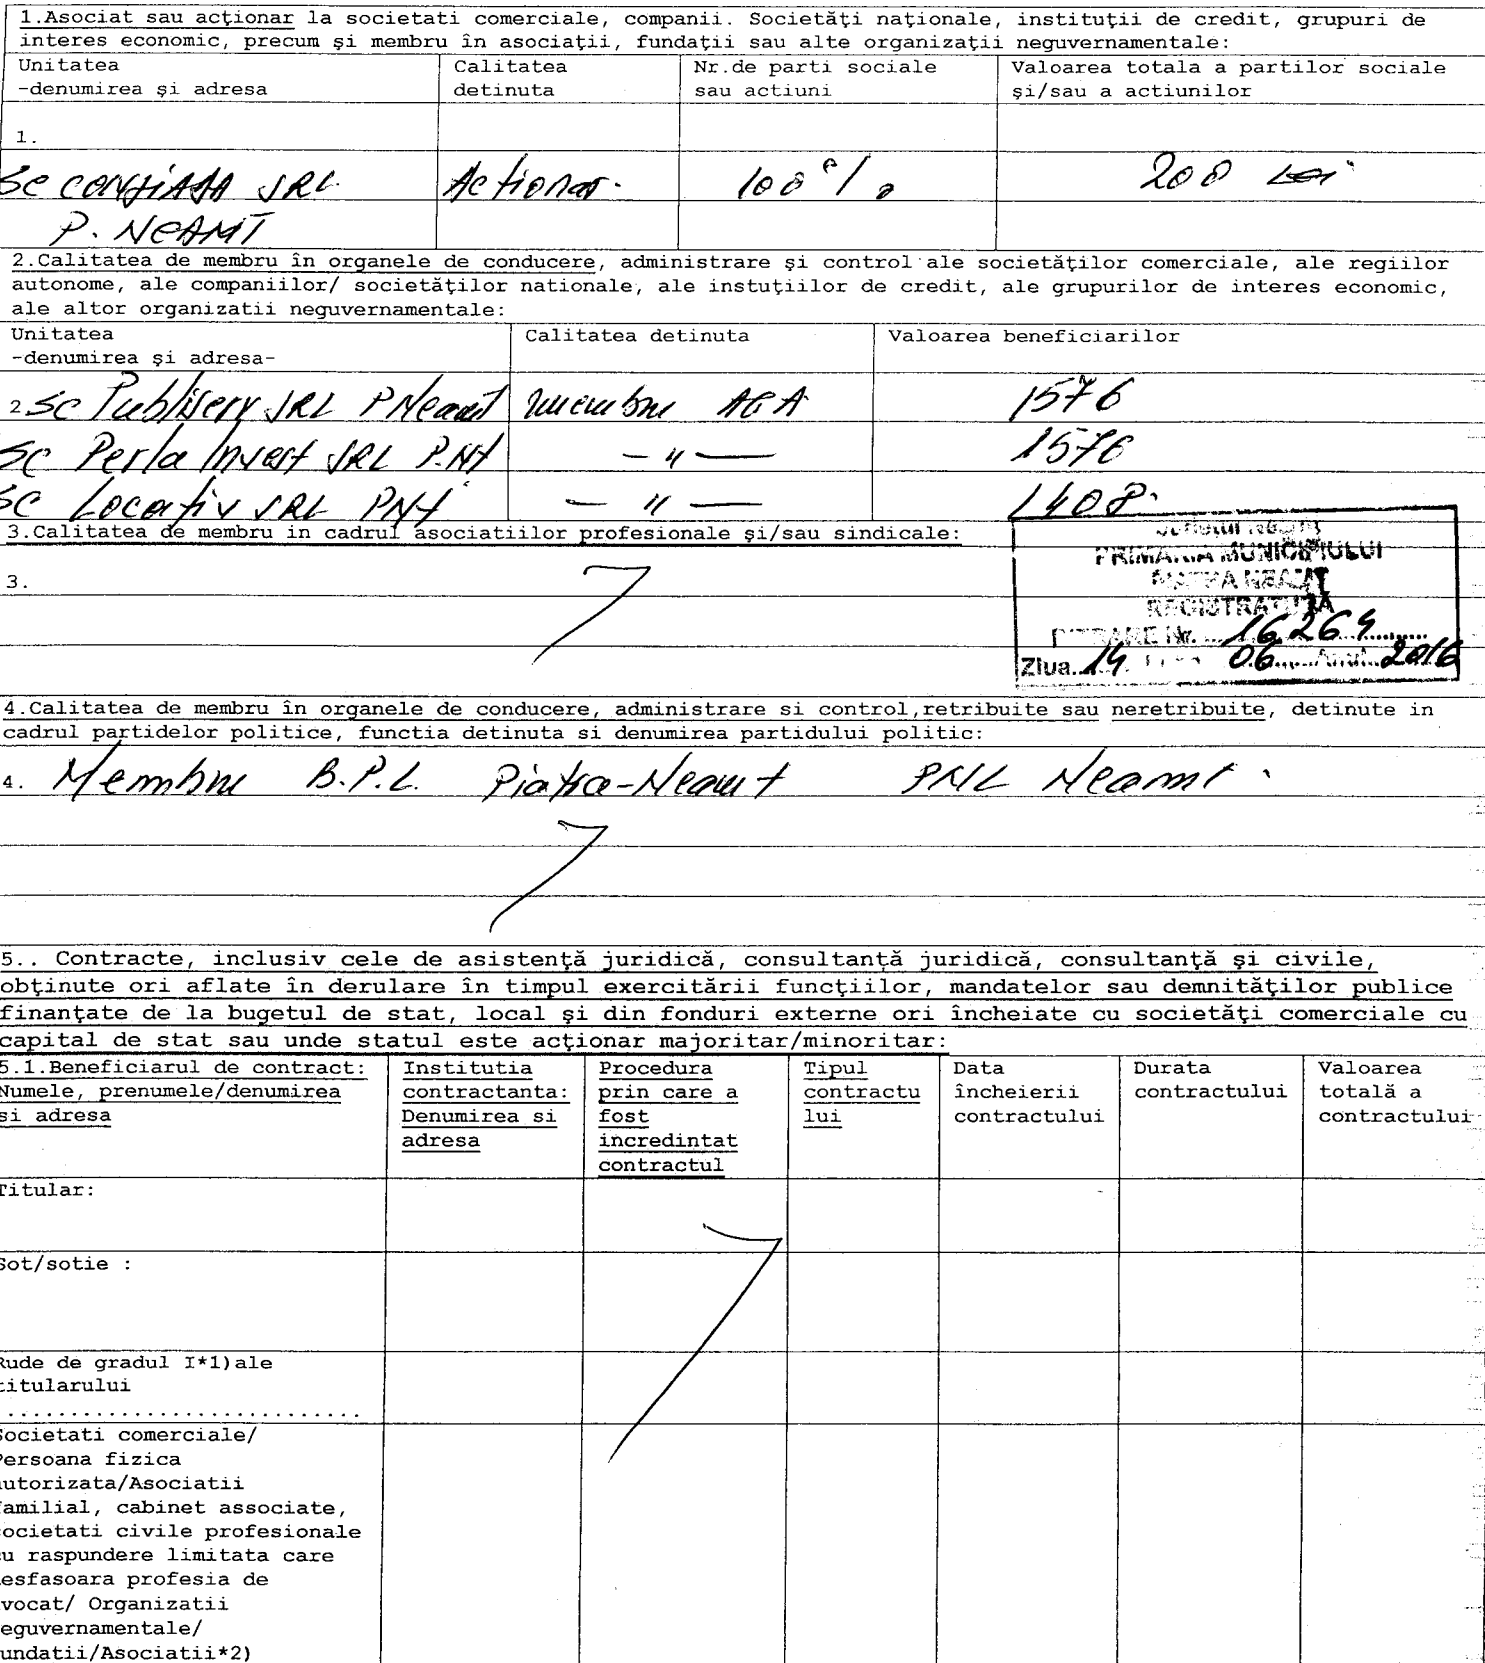 1.Asociat sau acţionar la societati comerciale, companii. Societăţi naţionale, instituţii de credit, grupuri de
interes economic, precum şi membru în asociaţii, fundaţii sau alte organizaţii neguvernamentale:
Unitatea
-denumirea şi adresa
Calitatea
detinuta
Nr.de parti sociale
sau actiuni
Valoarea totala a partilor sociale
şi/sau a actiunilor
1.
SC SRL Actionar. 100% 200 Lei
P. NEAMT
2.Calitatea de membru în organele de conducere, administrare şi control ale societăţilor comerciale, ale regiilor
autonome, ale companiilor/ societăţilor nationale, ale instuţiilor de credit, ale grupurilor de interes economic,
ale altor organizatii neguvernamentale:
Unitatea
-denumirea şi adresa-
Calitatea detinuta
Valoarea beneficiarilor
2 SC Publiserv SRL P Neamt membru AGA 1576
SC Perla Invest SRL P.NT - " - 1576
SC Locativ SRL PNT - " - 1408.
3.Calitatea de membru in cadrul asociatiilor profesionale şi/sau sindicale:
3.
PRIMARIA MUNICIPIULUI
PIATRA NEAMT
REGISTRATURĂ
INTRARE Nr. 16264
Ziua 14 06 Anul 2016
4.Calitatea de membru în organele de conducere, administrare si control,retribuite sau neretribuite, detinute in
cadrul partidelor politice, functia detinuta si denumirea partidului politic:
4. Membru B.P.L. Piatra-Neamt PNL Neamt.
5.. Contracte, inclusiv cele de asistenţă juridică, consultanţă juridică, consultanţă şi civile,
obţinute ori aflate în derulare în timpul exercitării funcţiilor, mandatelor sau demnităţilor publice
finanţate de la bugetul de stat, local şi din fonduri externe ori încheiate cu societăţi comerciale cu
capital de stat sau unde statul este acţionar majoritar/minoritar:
5.1.Beneficiarul de contract:
Numele, prenumele/denumirea
si adresa
Institutia
contractanta:
Denumirea si
adresa
Procedura
prin care a
fost
incredintat
contractul
Tipul
contractu
lui
Data
încheierii
contractului
Durata
contractului
Valoarea
totală a
contractului
Titular:
Sot/sotie :
Rude de gradul I*1)ale
titularului
............................
Societati comerciale/
Persoana fizica
autorizata/Asociatii
familial, cabinet associate,
societati civile profesionale
cu raspundere limitata care
desfasoara profesia de
avocat/ Organizatii
neguvernamentale/
fundatii/Asociatii*2)